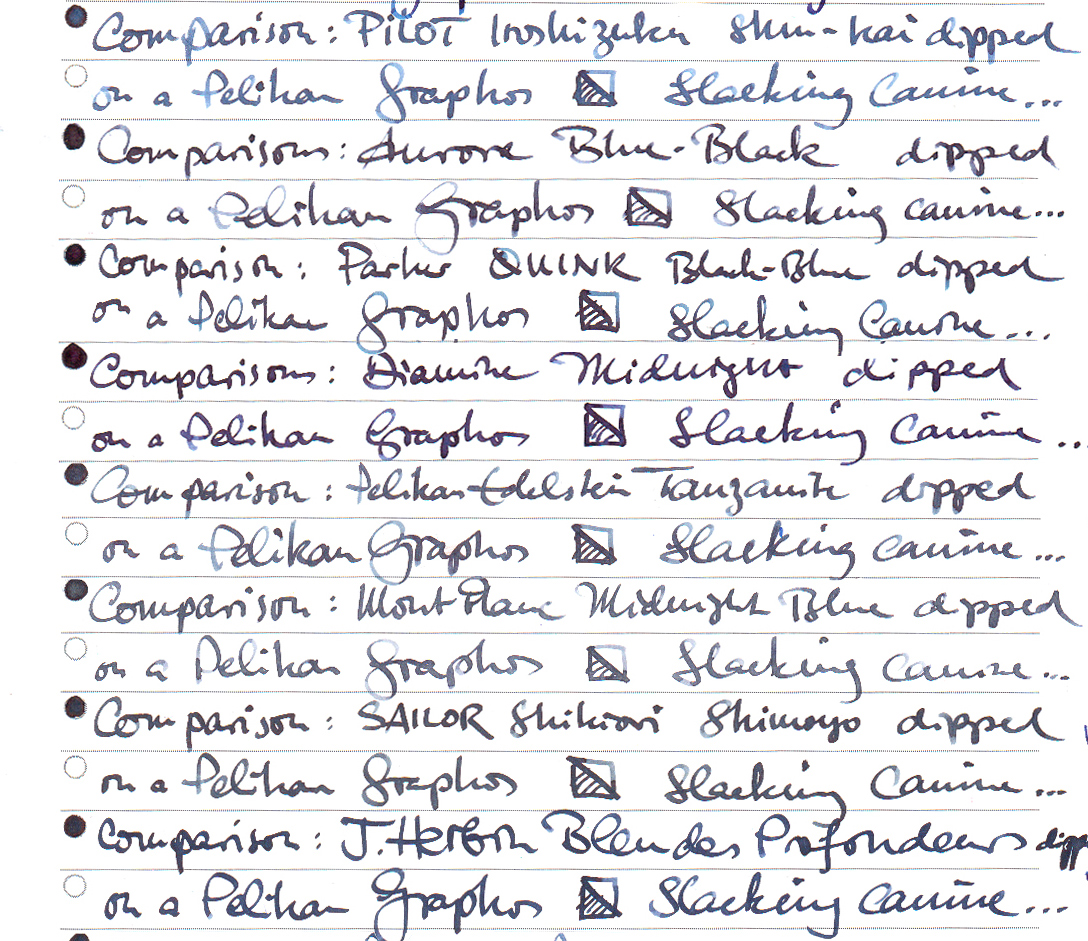 Comparison: PILOT Iroshizuku Shin-kai dipped
on a Pelikan Graphos Slacking Canine...
Comparison: Aurora Blue-Black dipped
on a Pelikan Graphos Slacking canine...
Comparison: Parker QUINK Black-Blue dipped
on a Pelikan Graphos Slacking Canine...
Comparison: Diamine Midnight dipped
on a Pelikan Graphos Slacking Canine...
Comparison: Pelikan Edelstein Tanzanite dipped
on a Pelikan Graphos Slacking canine...
Comparison: Mont Blanc Midnight Blue dipped
on a Pelikan Graphos Slacking Canine...
Comparison: SAILOR Shikiori Shimoyo dipped
on a Pelikan Graphos Slacking Canine...
Comparison: J. Herbin Bleu des Profondeurs dipp
on a Pelikan Graphos Slacking Canine...